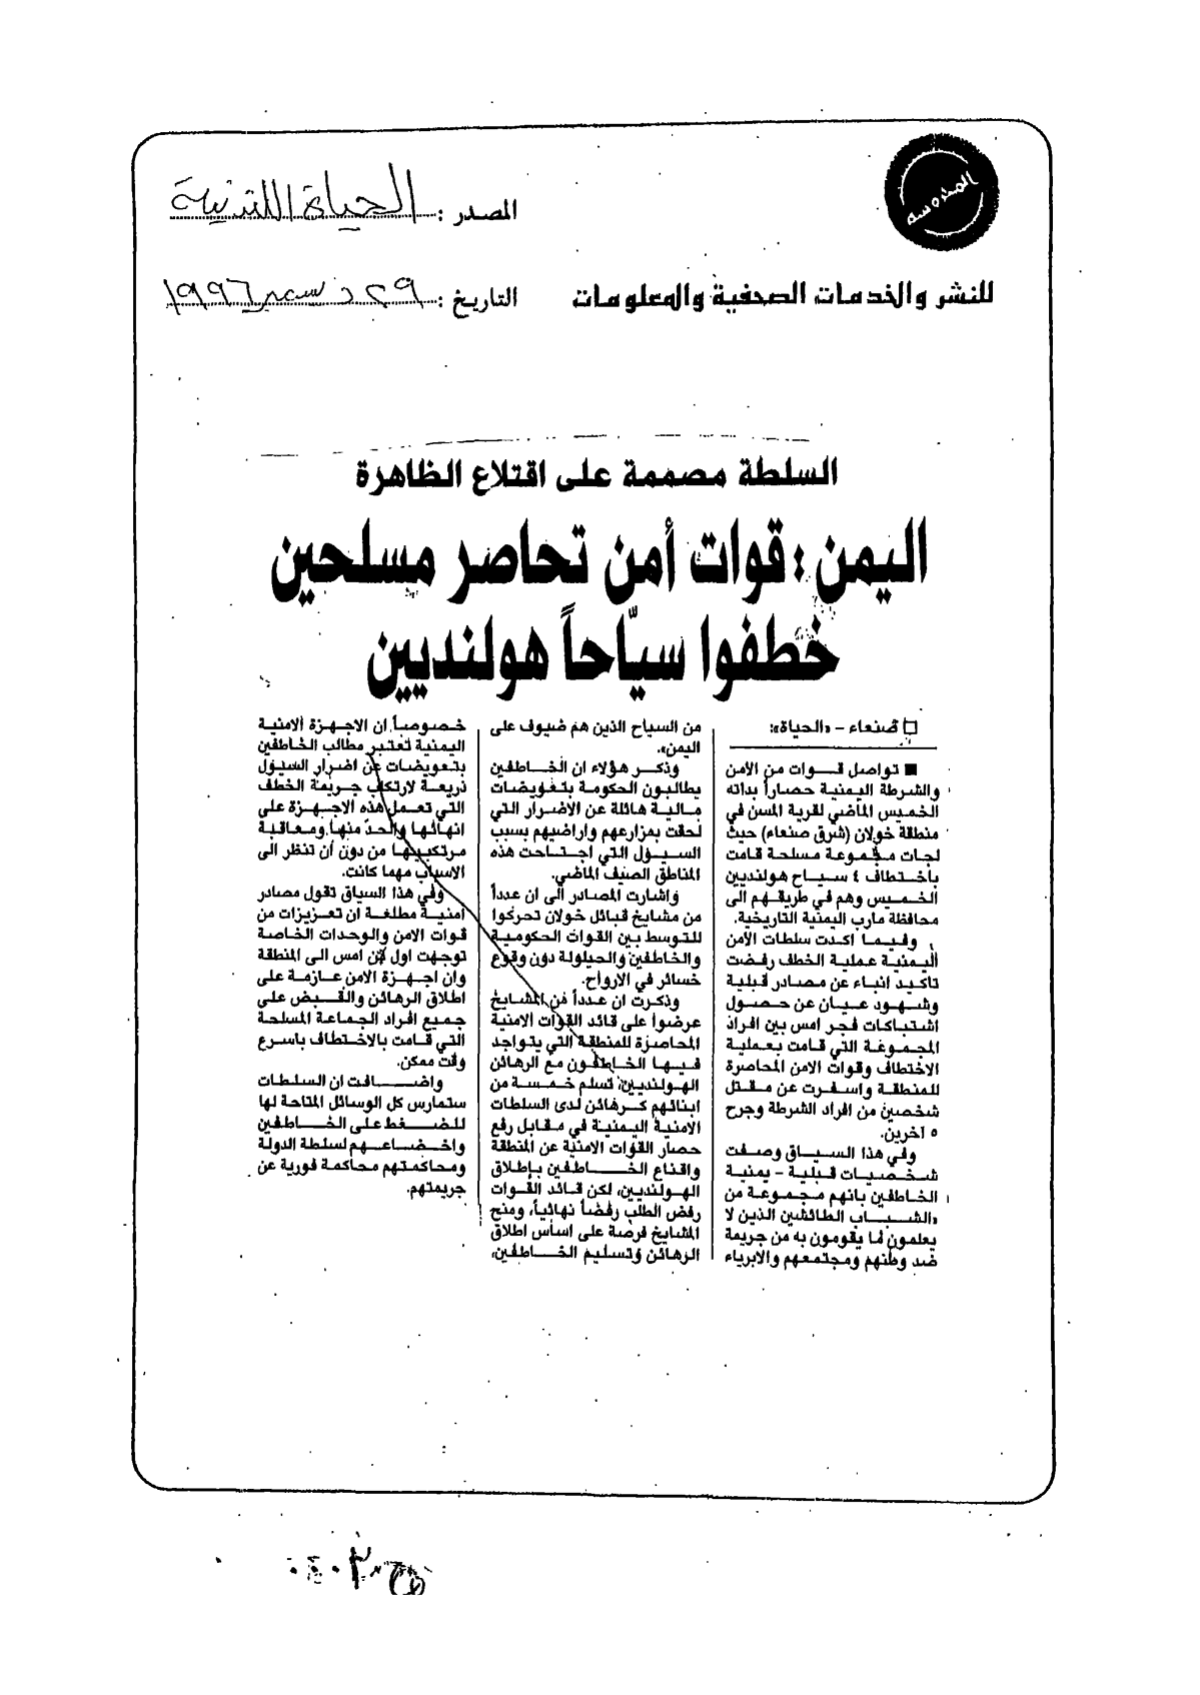 المحروسة
المصدر : الحياة اللندنية
للنشر والخدمات الصحفية والمعلومات
التاريخ : ٢٩ ديسمبر ١٩٩٦
السلطة مصممة على اقتلاع الظاهرة
اليمن : قوات أمن تحاصر مسلحين
خطفوا سيّاحاً هولنديين
□ صنعاء – «الحياة»:
■ تواصل قوات من الأمن
والشرطة اليمنية حصاراً بدأته
الخميس الماضي لقرية المسن في
منطقة خولان (شرق صنعاء) حيث
لجأت مجموعة مسلحة قامت
باختطاف ٤ سياح هولنديين
الخميس وهم في طريقهم الى
محافظة مارب اليمنية التاريخية.
وفيما اكدت سلطات الأمن
اليمنية عملية الخطف رفضت
تاكيد انباء عن مصادر قبلية
وشهود عيان عن حصول
اشتباكات فجر امس بين افراد
المجموعة التي قامت بعملية
الاختطاف وقوات الامن المحاصرة
للمنطقة واسفرت عن مقتل
شخصين من افراد الشرطة وجرح
٥ آخرين.
وفي هذا السياق وصفت
شخصيات قبلية – يمنية
الخاطفين بانهم مجموعة من
«الشباب الطائشين الذين لا
يعلمون ما يقومون به من جريمة
ضد وطنهم ومجتمعهم والابرياء
من السياح الذين هم ضيوف على
اليمن».
وذكر هؤلاء ان الخاطفين
يطالبون الحكومة بتعويضات
مالية هائلة عن الاضرار التي
لحقت بمزارعهم واراضيهم بسبب
السيول التي اجتاحت هذه
المناطق الصيف الماضي.
واشارت المصادر الى ان عدداً
من مشايخ قبائل خولان تحركوا
للتوسط بين القوات الحكومية
والخاطفين والحيلولة دون وقوع
خسائر في الارواح.
وذكرت ان عدداً من المشايخ
عرضوا على قائد القوات الامنية
المحاصرة للمنطقة التي يتواجد
فيها الخاطفون مع الرهائن
الهولنديين، تسلم خمسة من
ابنائهم كرهائن لدى السلطات
الامنية اليمنية في مقابل رفع
حصار القوات الامنية عن المنطقة
واقناع الخاطفين بإطلاق
الهولنديين، لكن قائد القوات
رفض الطلب رفضاً نهائياً، ومنح
المشايخ فرصة على اساس اطلاق
الرهائن وتسليم الخاطفين،
خصوصاً ان الاجهزة الامنية
اليمنية تعتبر مطالب الخاطفين
بتعويضات عن اضرار السيول
ذريعة لارتكاب جريمة الخطف
التي تعمل هذه الاجهزة على
انهائها والحدّ منها، ومعاقبة
مرتكبيها من دون أن تنظر الى
الاسباب مهما كانت.
وفي هذا السياق تقول مصادر
امنية مطلعة ان تعزيزات من
قوات الامن والوحدات الخاصة
توجهت اول من امس الى المنطقة
وان اجهزة الامن عازمة على
اطلاق الرهائن والقبض على
جميع افراد الجماعة المسلحة
التي قامت بالاختطاف باسرع
وقت ممكن.
واضافت ان السلطات
ستمارس كل الوسائل المتاحة لها
للضغط على الخاطفين
واخضاعهم لسلطة الدولة
ومحاكمتهم محاكمة فورية عن
جريمتهم.